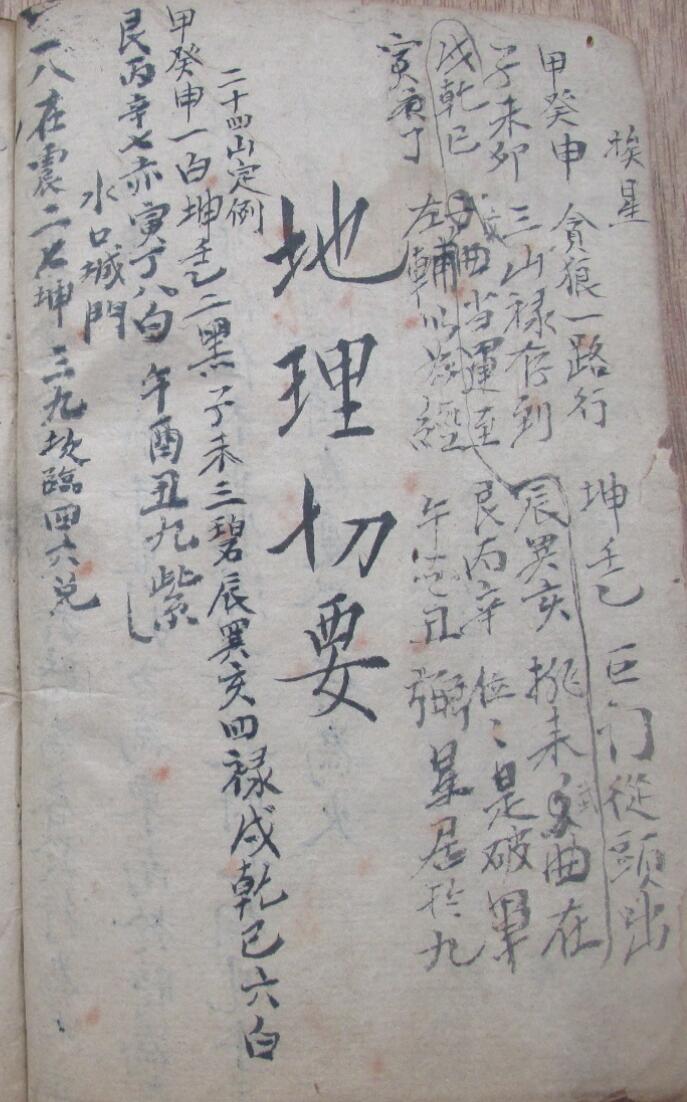 挨星
甲癸申 貪狼一路行
坤壬乙 巨门從頭出
子未卯 三山禄存到
辰巽亥 挑来曲在
戌乾巳 曲当運至
艮丙辛 位々是破軍
寅庚丁 左輔以為經
午酉丑 弼星居於九
地理切要
二十四山定例
甲癸申一白坤壬乙二黑子未三碧辰巽亥四禄戌乾巳六白
艮丙辛七赤寅丁八白 午酉丑九紫
水口城門
一八在震二七坤 三九坎臨四六兑